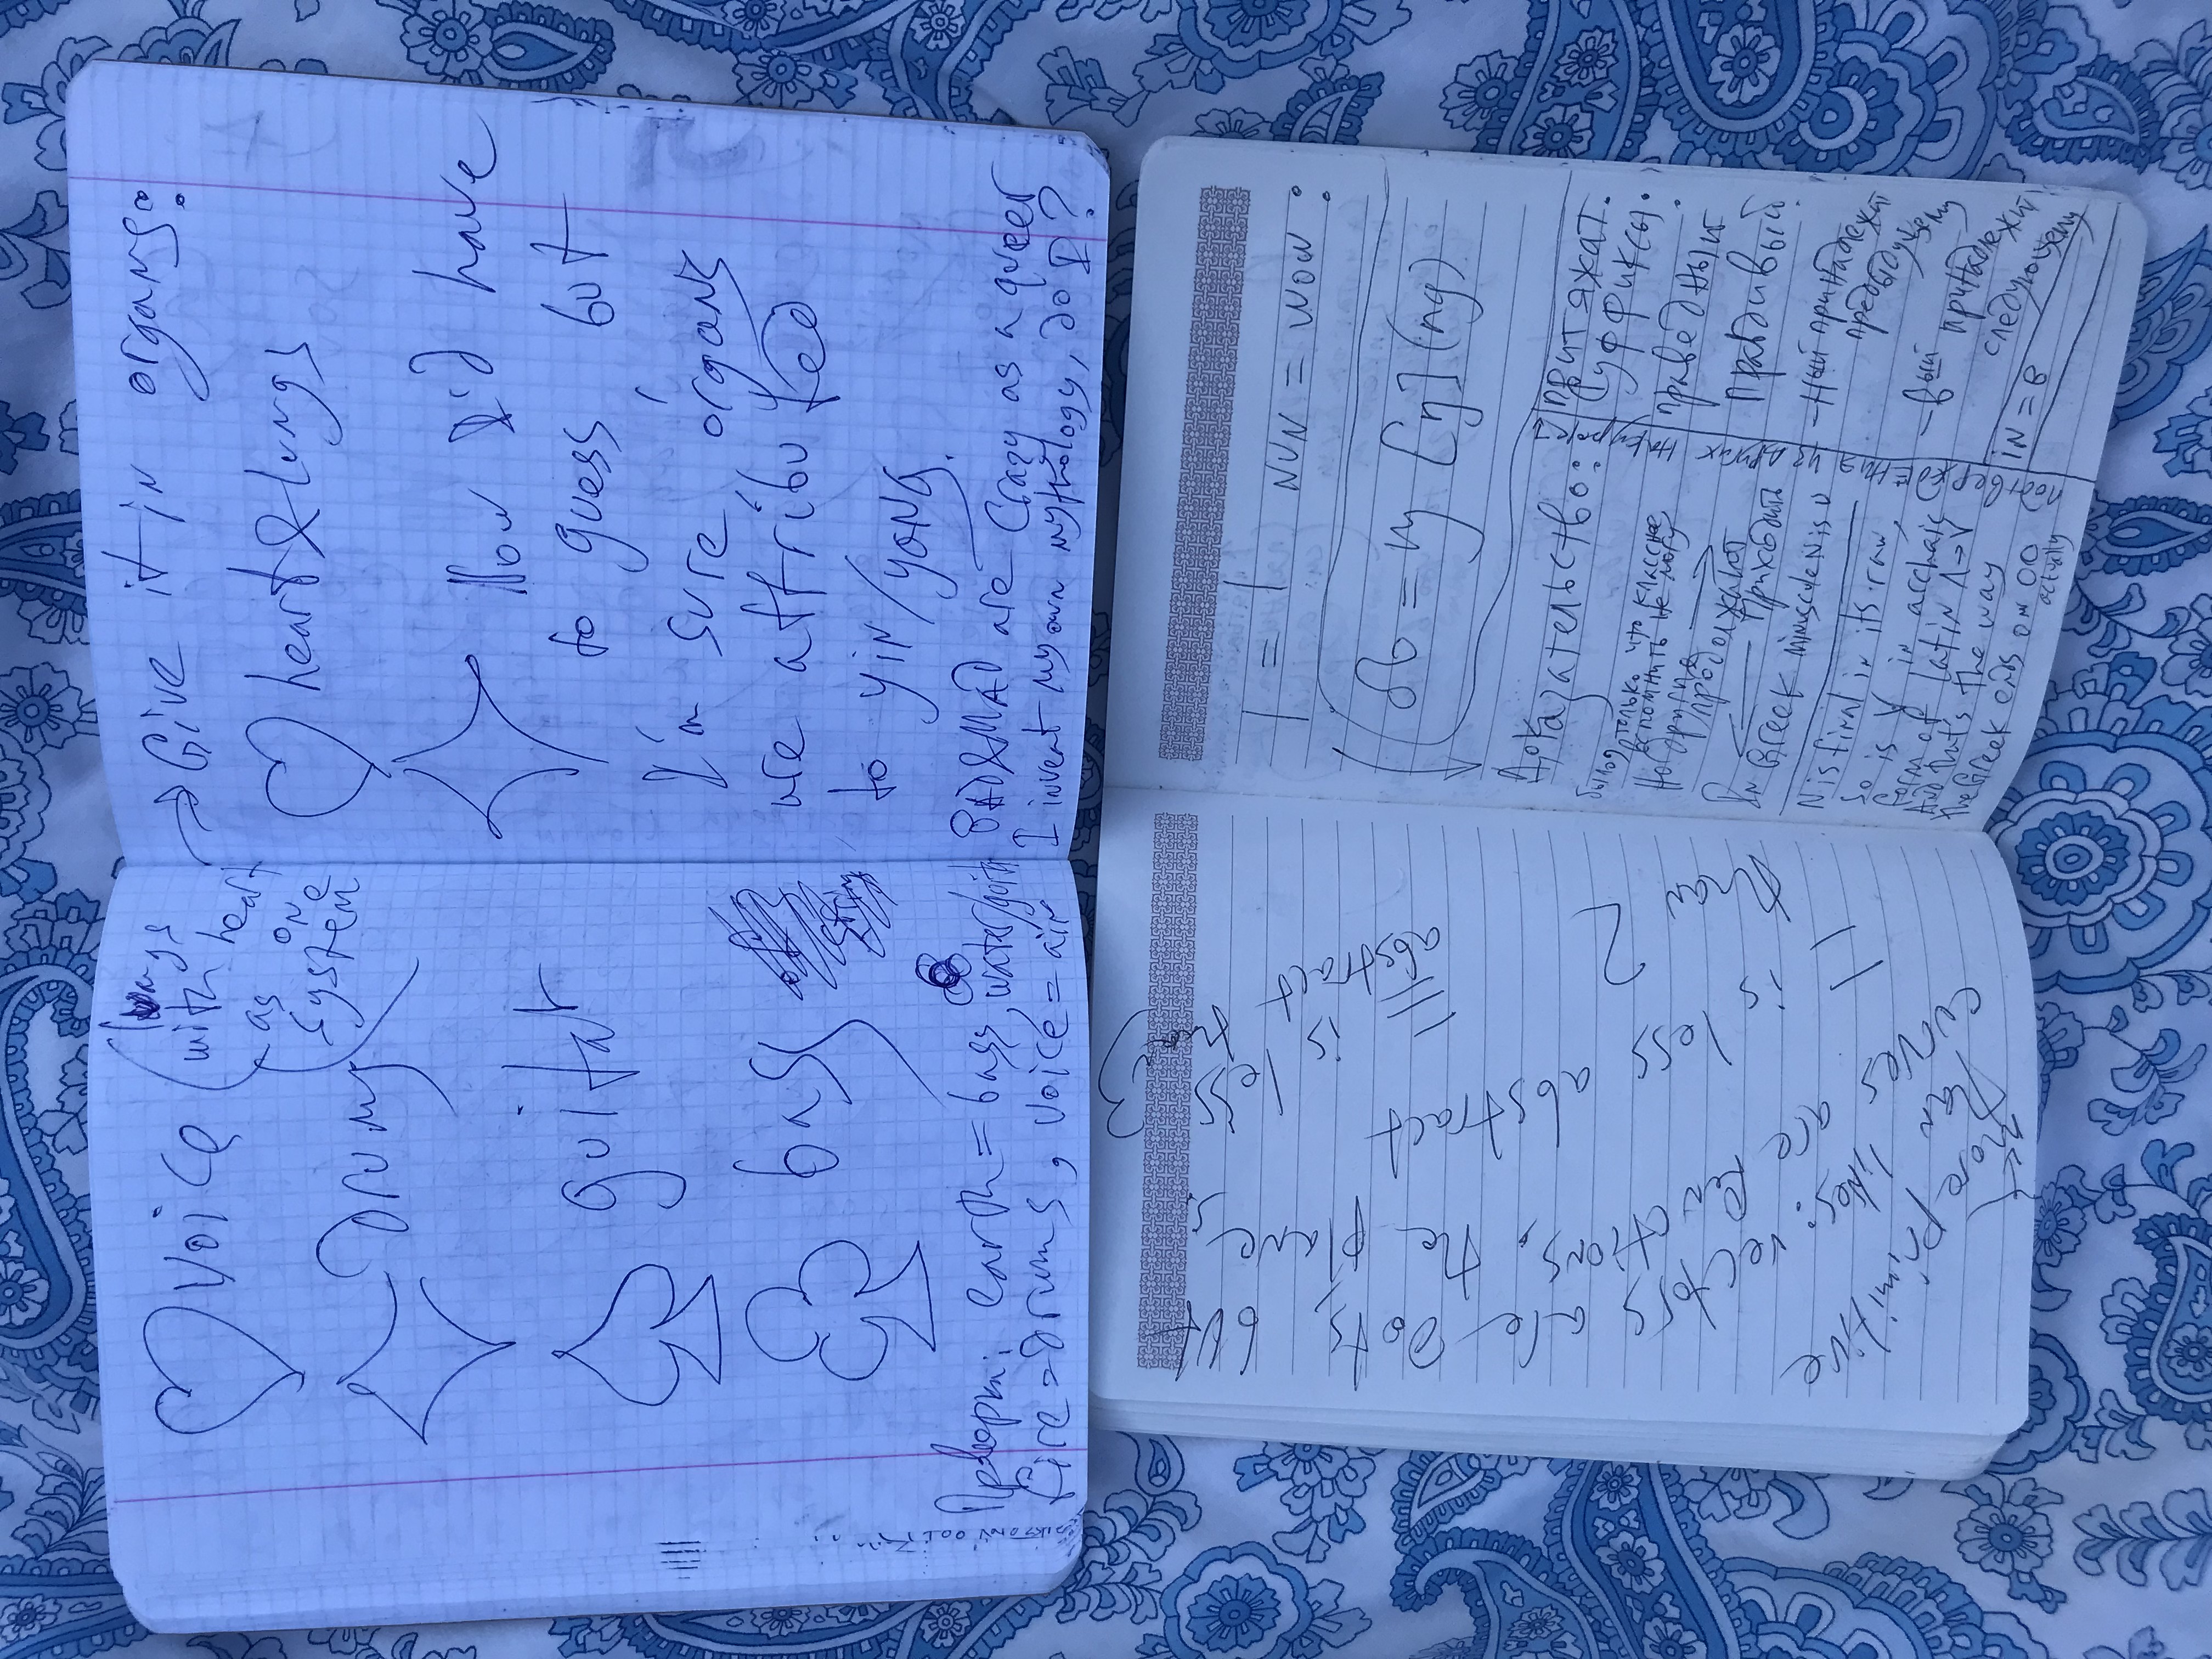 voice
(lungs
with heart
as one
system
drums
guitar
bass
Проверка: earth = bass, water/guita
fire = drums, voice = air
→ Give it in organs:
heart & lungs
Now I'd have
to guess but
I'm sure organs
are attributed
to yin/yang.
BAD&MAD are crazy as a queer
I invent my own mythology, do I?
more primitive
than likos: vectors are dots, but
curves are functions, the planes.
1 is less abstract is less
than 2 abstract than 3
1 = 1 NUN = WOW :
[ŋ] (ng)
Доказательство:
только что класснее
вспомнить не могу
Но другие
продолжают
Приходить
In Greek minuscule N is ν
N is final in its raw,
so is V in archaic
form of Latin Λ→V
And that's the way
the Greek ends on OO
actually
подтверждения из других
притяжат.
суффиксы:
праведный
правдивый.
-ный принадлежит
предыдущему
-вый принадлежит
следующему
IN = B